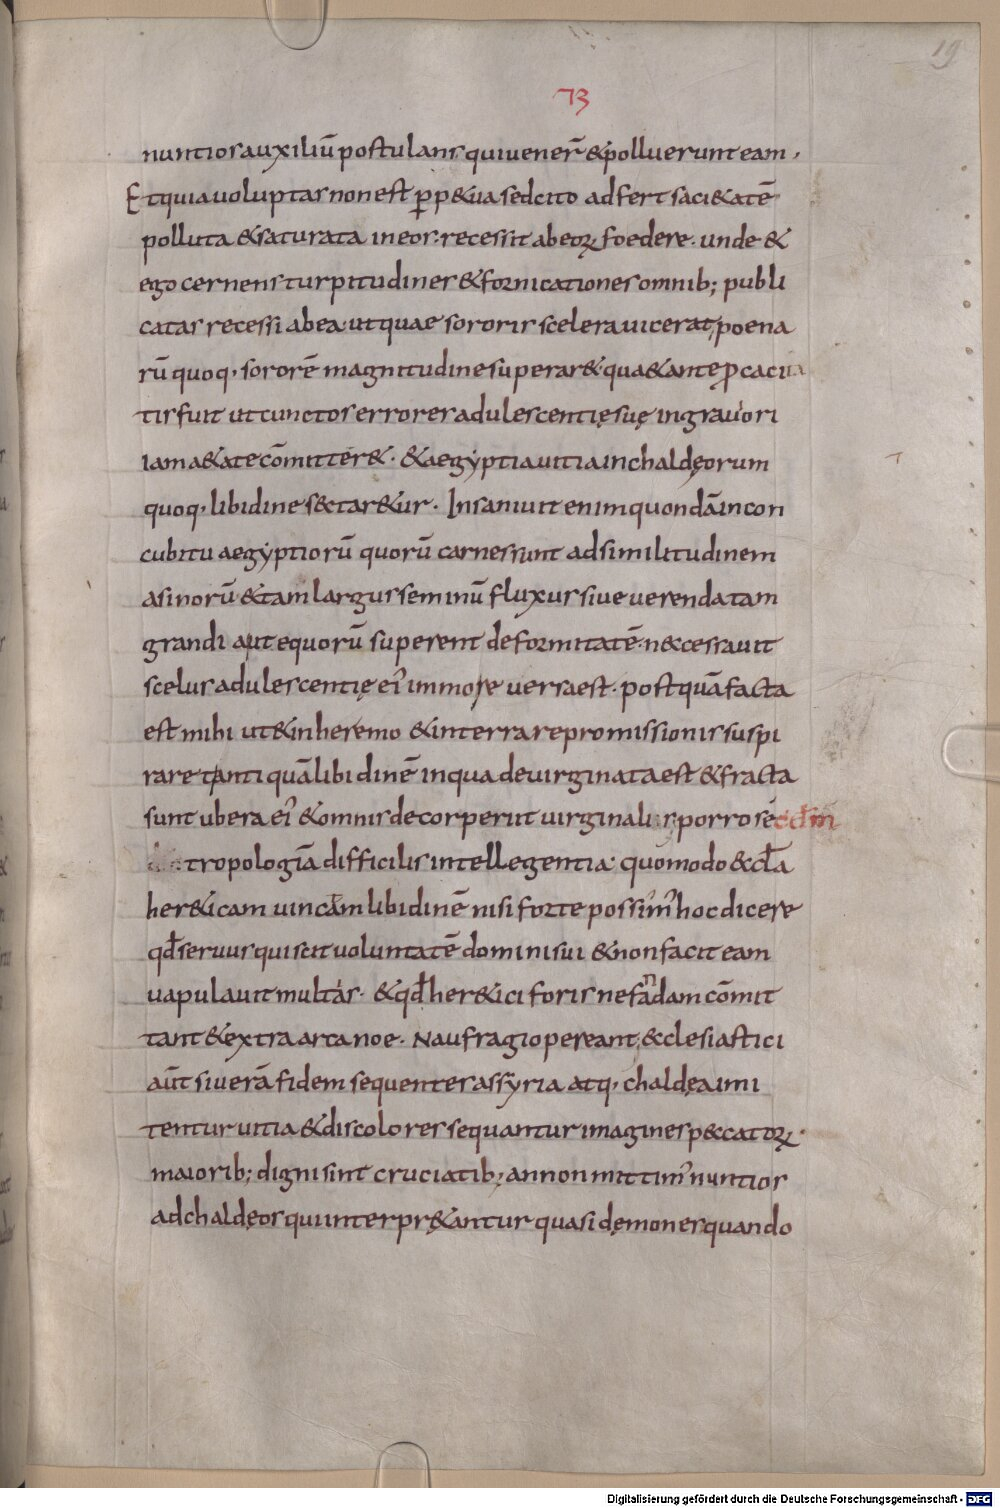 19
73
nuntios auxiliū postulans, qui uener̄ & polluerunt eam,
Et quia uoluptas non est ꝑp&ua sed cito adfert saci&atē
polluta & saturata in eos. recessit ab eoꝝ foedere. unde &
ego cernens turpitudines & fornicationes omnib; publi
catas recessi ab ea. ut quae sororis scelera uicerat, poena
rū quoq, sororē magnitudine superar&. qua& ante ꝓcacita
tis fuit ut cunctos errores adulescentię suę in grauiori
iam a&ate cōmitter&. & aegyptia uitia in chaldęorum
quoq, libidine s&tar&ur. Insaniuit enim quondā in con
cubitu aegyptiorū quorū carnes sunt ad similitudinem
asinorū & tam largus seminū fluxus siue uerenda tam
grandi aut equorū superent deformitatē. nec cessauit
scelus adulescentię ei' immo se uersa est. postquā facta
est mihi ut & in heremo & in terra repromissionis suspi
rare tanti quā libidinē in qua deuirginata est & fracta
sunt ubera ei' & omnis decor periit uirginalis porro sēcdm
tropologiā difficilis intellegentia. quomodo &cl̄a
her&icam uincām libidinē nisi forte possim' hoc dicere
qđ seruus qui scit uoluntatē domini sui & non facit eam
uapulauit multas. & qđ her&ici foris nefandam cōmit
tant & extra arca noe. Naufragio pereant, &clesiastici
aūt si uerā fidem sequentes assyria atq, chaldęa imi
tentur uitia & discolores sequantur imagines p&catoꝝ.
maiorib; digni sint cruciatib; an non mittim' nuntios
ad chaldęos qui interpr&antur quasi dęmones quando
Digitalisierung gefördert durch die Deutsche Forschungsgemeinschaft - DFG